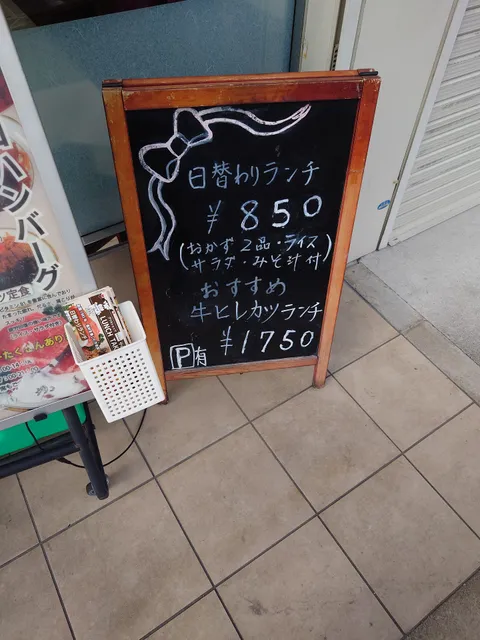 日替わりランチ
¥850
(おかず2品・ライス
サラダ・みそ汁付)
おすすめ
牛ヒレカツランチ
¥1750
P有
ハンバーグ
定食
たくさんあり
LUNCH